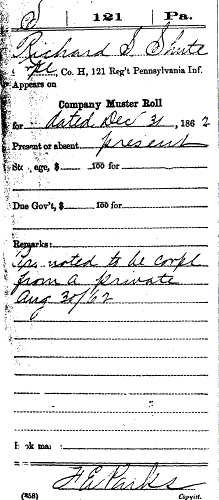 S 121 Pa.
Richard S Shute
Co. H, 121 Reg't Pennsylvania Inf.
Appears on
Company Muster Roll
for dated Dec 31, 1862
Present or absent present
age, $ 100 for
Due Gov't, $ 100 for
Remarks:
noted to be corpl
from a private
Aug 30/62
Book
F. A. Parks
(858) Copyist.